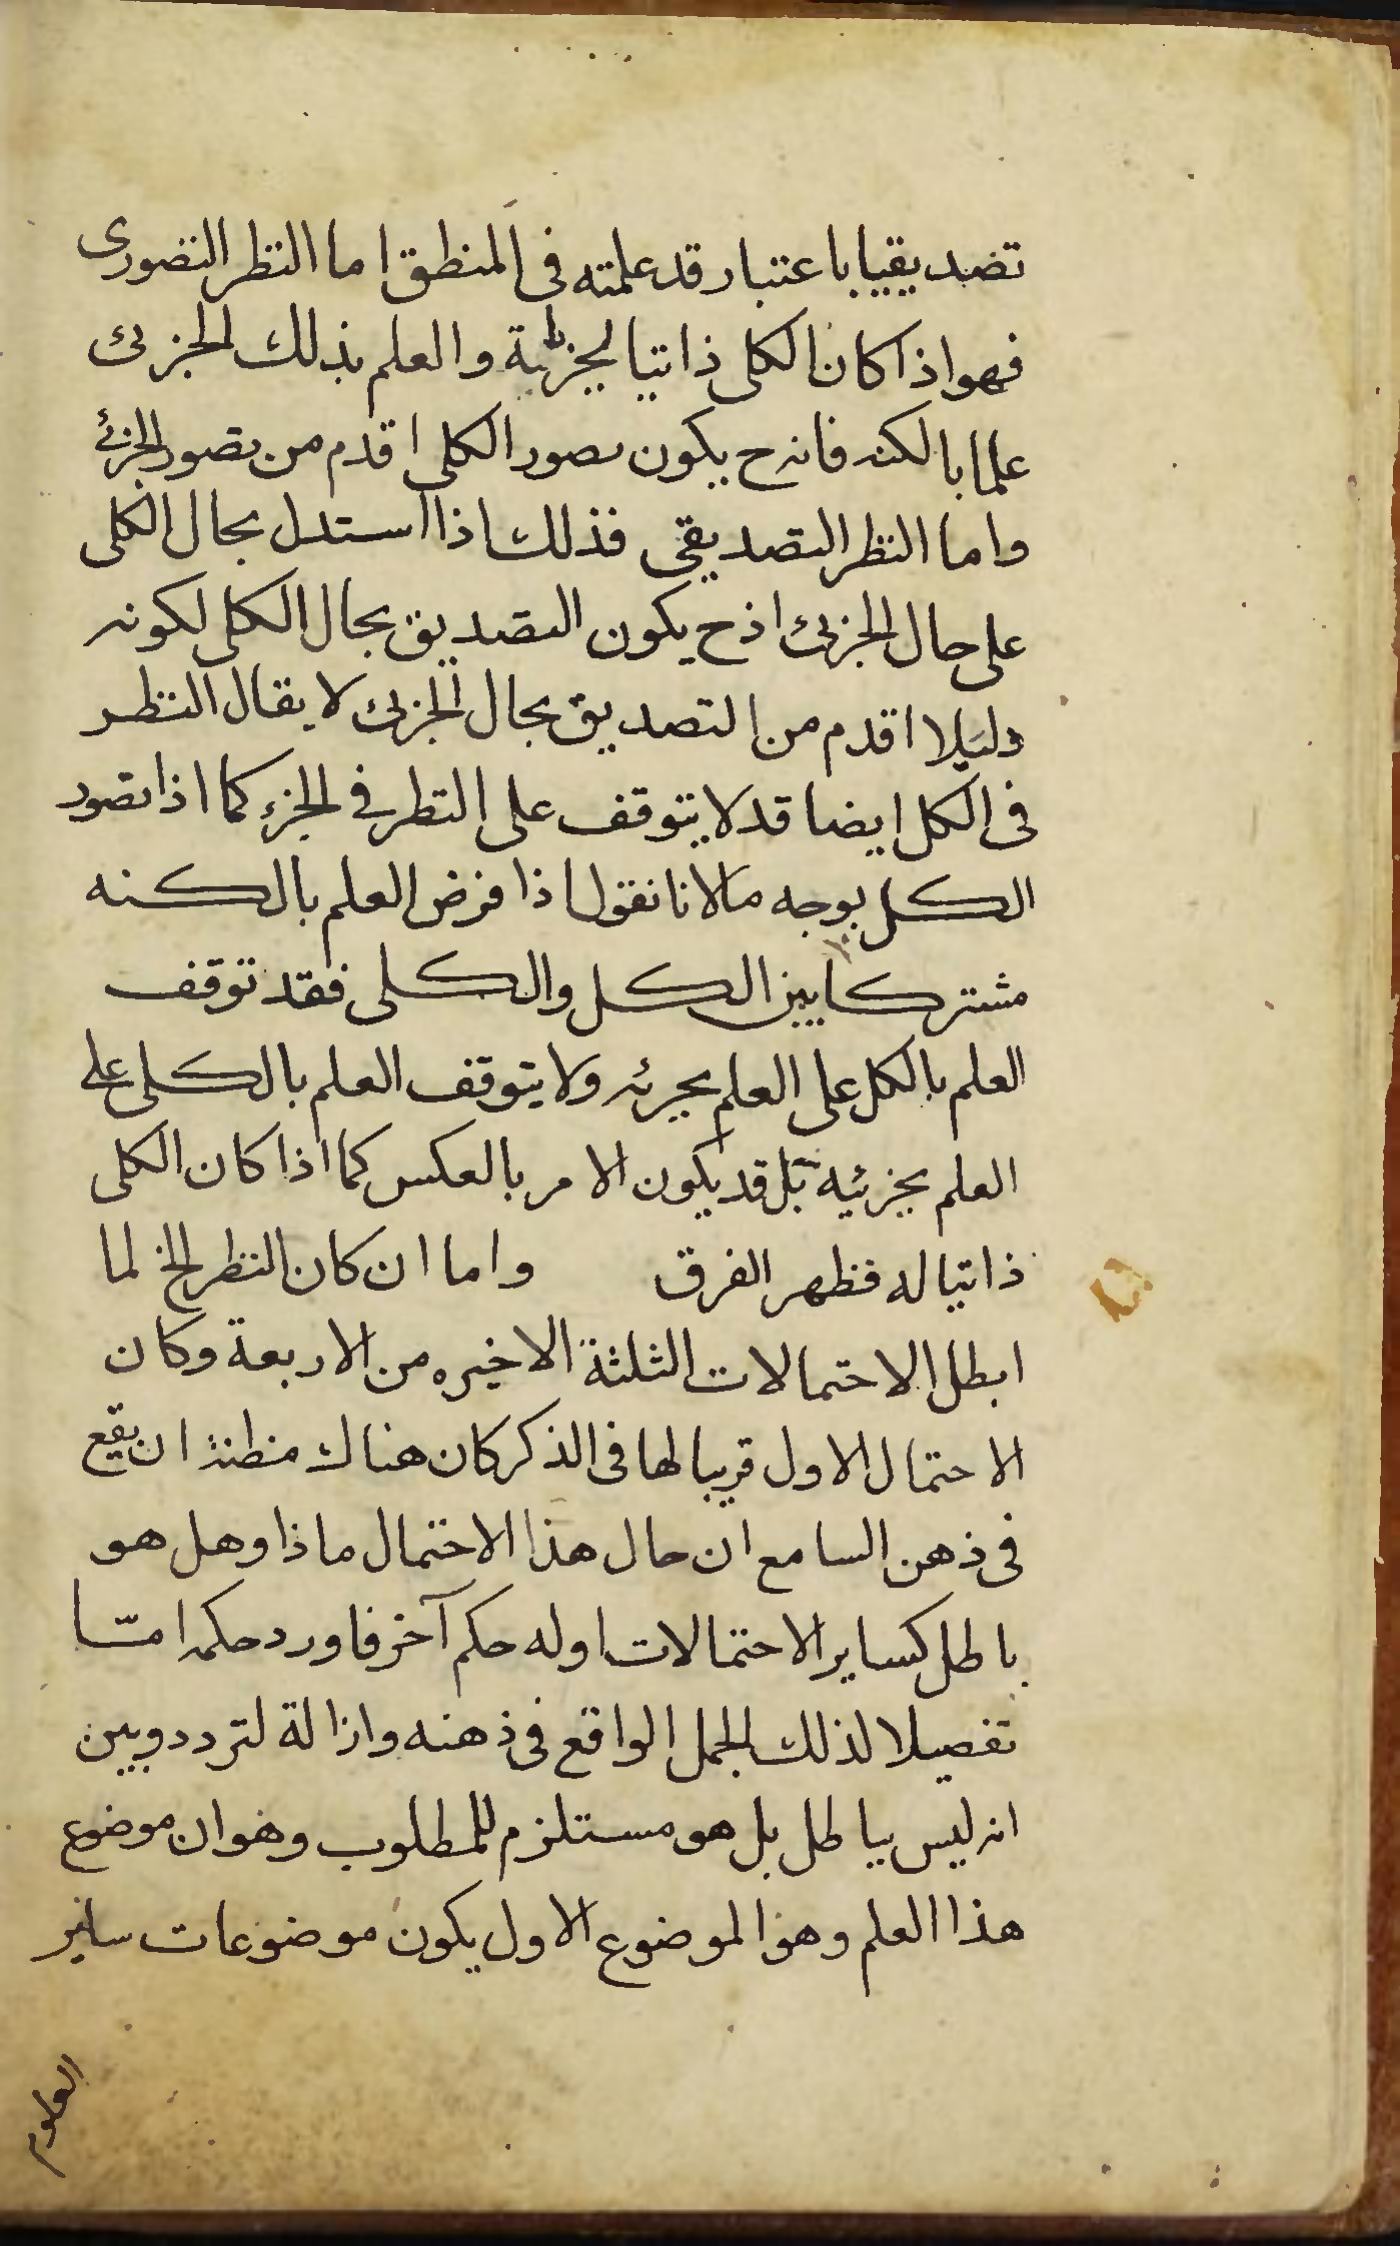 تصديقيا باعتبار قد علمته فى المنطق اما النظر التصورى
فهو اذا كان الكلى ذاتيا لجزئية والعلم بذلك الجزئ
علما بالكنه فانه ح يكون تصور الكلى اقدم من تصور الجزئ
واما النظر التصديقى فذلك اذا استدل بحال الكلى
على حال الجزئ اذ ح يكون التصديق بحال الكلى لكونه
دليلا اقدم من التصديق بحال الجزئ لا يقال النظر
فى الكل ايضا قد لا يتوقف على النظر فى الجزء كما اذا تصور
الكل بوجه ما لانا نقول اذا فرض العلم بالكنه
مشتركا بين الكل والكلى فقد توقف
العلم بالكل على العلم بجزئه ولا يتوقف العلم بالكلى على
العلم بجزئيه بل قد يكون الامر بالعكس كما اذا كان الكلى
ذاتيا له فظهر الفرق واما ان كان النظر الخ لما
ابطل الاحتمالات الثلثة الاخيره من الاربعة وكان
الاحتمال الاول قريبا لها فى الذكر كان هناك مظنة ان يقع
فى ذهن السامع ان حال هذا الاحتمال ماذا وهل هو
باطل كساير الاحتمالات او له حكم آخر فاورد حكمه امّا
تفصيلا لذلك المجمل الواقع فى ذهنه وازالة لتردد وبين
انه ليس بباطل بل هو مستلزم للمطلوب وهو ان موضوع
هذا العلم وهو الموضوع الاول يكون موضوعات سائر
العلوم